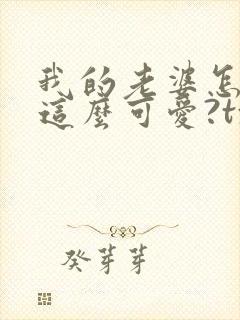 我的老婆怎
這麼可愛?t
癸芽芽